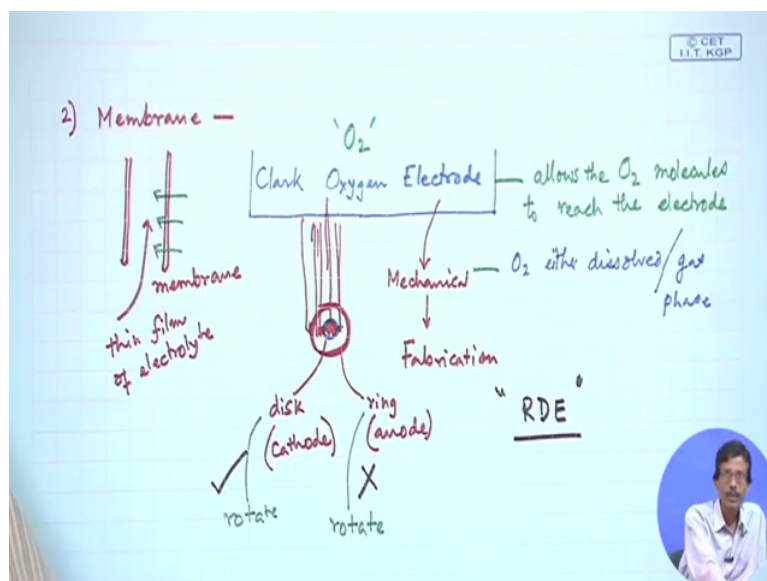 © CET
I.I.T. KGP
2) Membrane —
'O2'
Clark Oxygen Electrode
allows the O2 molecules
to reach the electrode
membrane
thin film
of electrolyte
Mechanical
O2 either dissolved/gas
phase
Fabrication
disk
(Cathode)
ring
(anode)
"RDE"
rotate
X
rotate